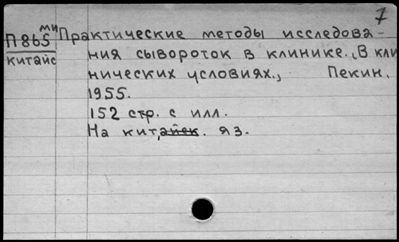 7
П865 ми Практические методы исследова-
китайс ния сывороток в клинике., В кли
нических условиях., Пекин.
1955.
152 стр. с илл.
На китайск. яз.